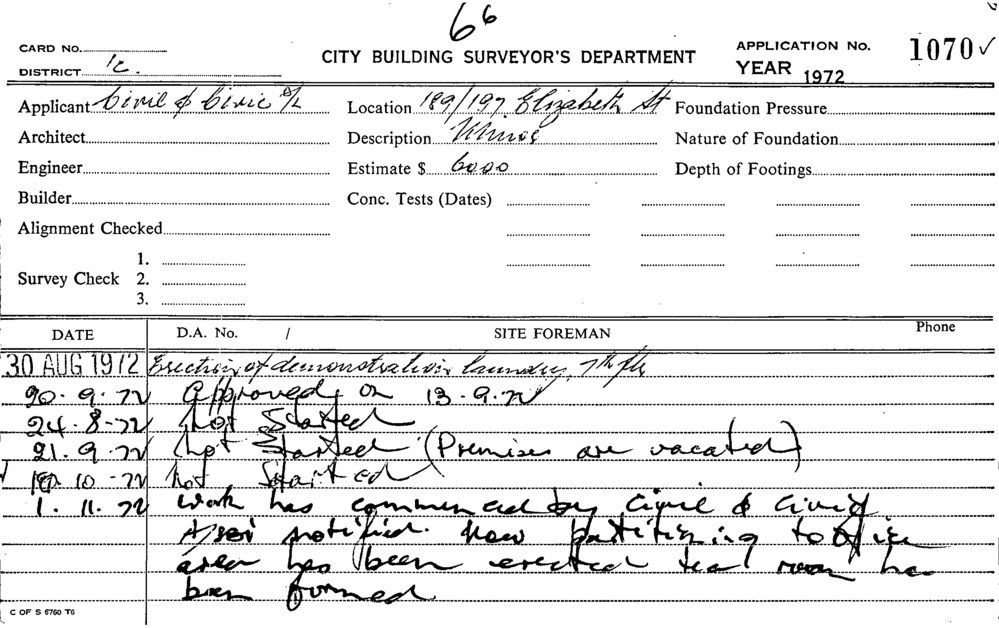 66
CARD NO.
CITY BUILDING SURVEYOR'S DEPARTMENT
APPLICATION No. 1070 ✓
DISTRICT 1c.
YEAR 1972
Applicant Civil & Civic P/L
Location 189/197 Elizabeth St
Foundation Pressure
Architect
Description
Nature of Foundation
Engineer
Estimate $ 6000
Depth of Footings
Builder
Conc. Tests (Dates)
Alignment Checked
Survey Check 1.
2.
3.
DATE D.A. No. / SITE FOREMAN Phone
30 AUG 1972 Erection of demonstration laundry, 7th flr
20.9.72 Approved on 13.9.72
24.8.72 Not Started
21.9.72 Not Started (Premises are vacated)
10.72 Not Started
1.11.72 Work has commenced by Civil & Civic
notified. New partitioning to office
area has been erected tea room has
been formed
C OF S 6760 T6